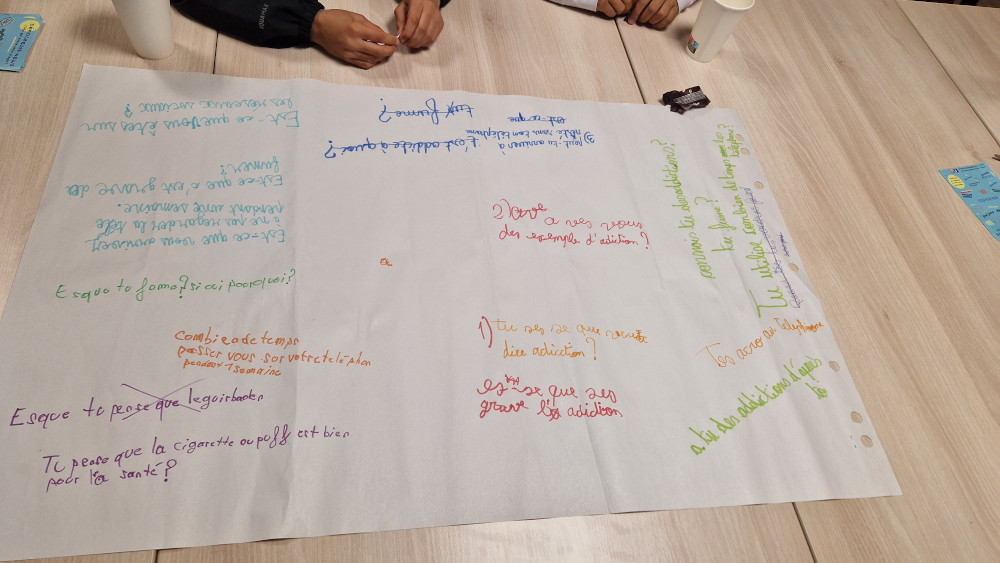 Est-ce que vous êtes sur
les réseaux sociaux ?
Est-ce que c'est grave de
fumer ?
Est-ce que vous arrivez
à ne pas regarder la télé
pendant une semaine.
Esque tu fume? si oui pourquoi?
combien de temps
passer vous sur votre téléphon
pendant 1 semaine
Esque tu pense que
Tu pense que la cigarette ou puff est bien
pour la santé?
est-ce que
tu fume?
3) peut-tu arriver à
rester sans ton téléphone
t'est addicte à quoi?
2)
a ves vous
des exemple d'adiction?
1) tu ses se que veut
dire adiction?
es-se que ses
grave l'adiction
connais tu des addictions?
tu fume?
Tu utilise combien de temps ton
téléphone?
Tes acro au Telephone
a tu des addictions d'après
toi